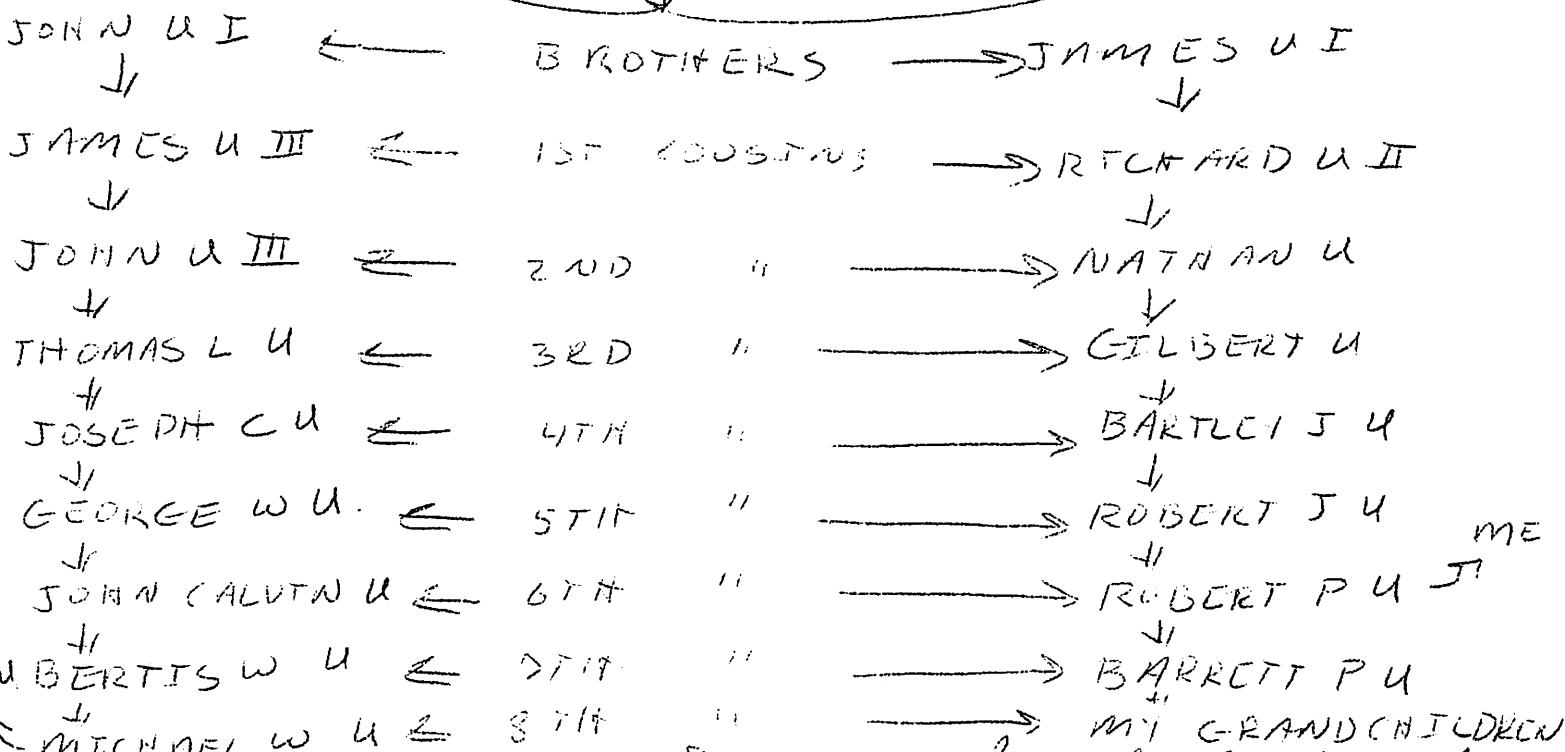 JOHN U I BROTHERS JAMES U I
JAMES U III 1ST COUSINS RICHARD U II
JOHN U III 2ND " NATHAN U
THOMAS L U 3RD " GILBERT U
JOSEPH C U 4TH " BARTLEY J U
GEORGE W U. 5TH " ROBERT J U
ME
JOHN CALVIN U 6TH " ROBERT P U
BERTIS W U 7TH " BARRETT P U
MICHAEL W U 8TH " MY GRANDCHILDREN